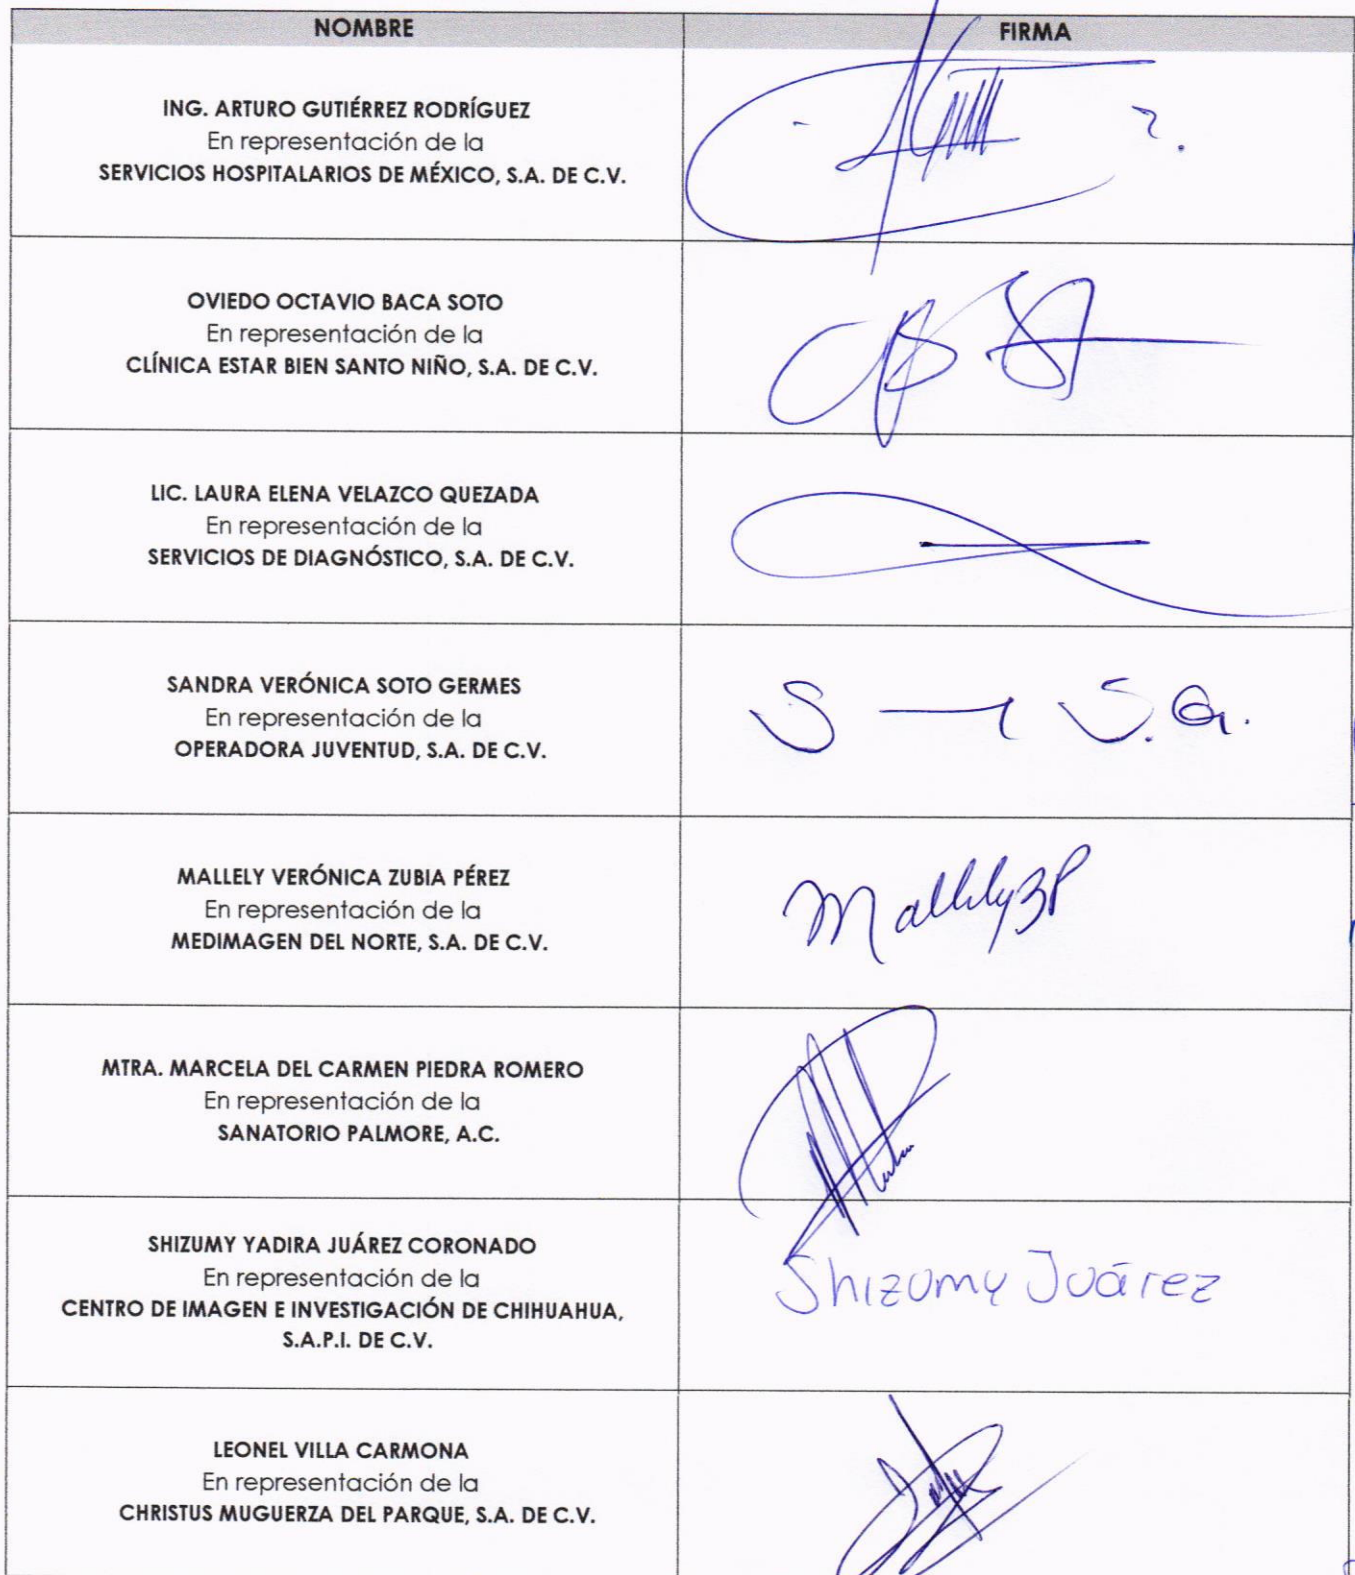 NOMBRE
FIRMA
ING. ARTURO GUTIÉRREZ RODRÍGUEZ
En representación de la
SERVICIOS HOSPITALARIOS DE MÉXICO, S.A. DE C.V.
OVIEDO OCTAVIO BACA SOTO
En representación de la
CLÍNICA ESTAR BIEN SANTO NIÑO, S.A. DE C.V.
LIC. LAURA ELENA VELAZCO QUEZADA
En representación de la
SERVICIOS DE DIAGNÓSTICO, S.A. DE C.V.
SANDRA VERÓNICA SOTO GERMES
En representación de la
OPERADORA JUVENTUD, S.A. DE C.V.
S S.G.
MALLELY VERÓNICA ZUBIA PÉREZ
En representación de la
MEDIMAGEN DEL NORTE, S.A. DE C.V.
MallelyZP
MTRA. MARCELA DEL CARMEN PIEDRA ROMERO
En representación de la
SANATORIO PALMORE, A.C.
SHIZUMY YADIRA JUÁREZ CORONADO
En representación de la
CENTRO DE IMAGEN E INVESTIGACIÓN DE CHIHUAHUA,
S.A.P.I. DE C.V.
Shizumy Juárez
LEONEL VILLA CARMONA
En representación de la
CHRISTUS MUGUERZA DEL PARQUE, S.A. DE C.V.